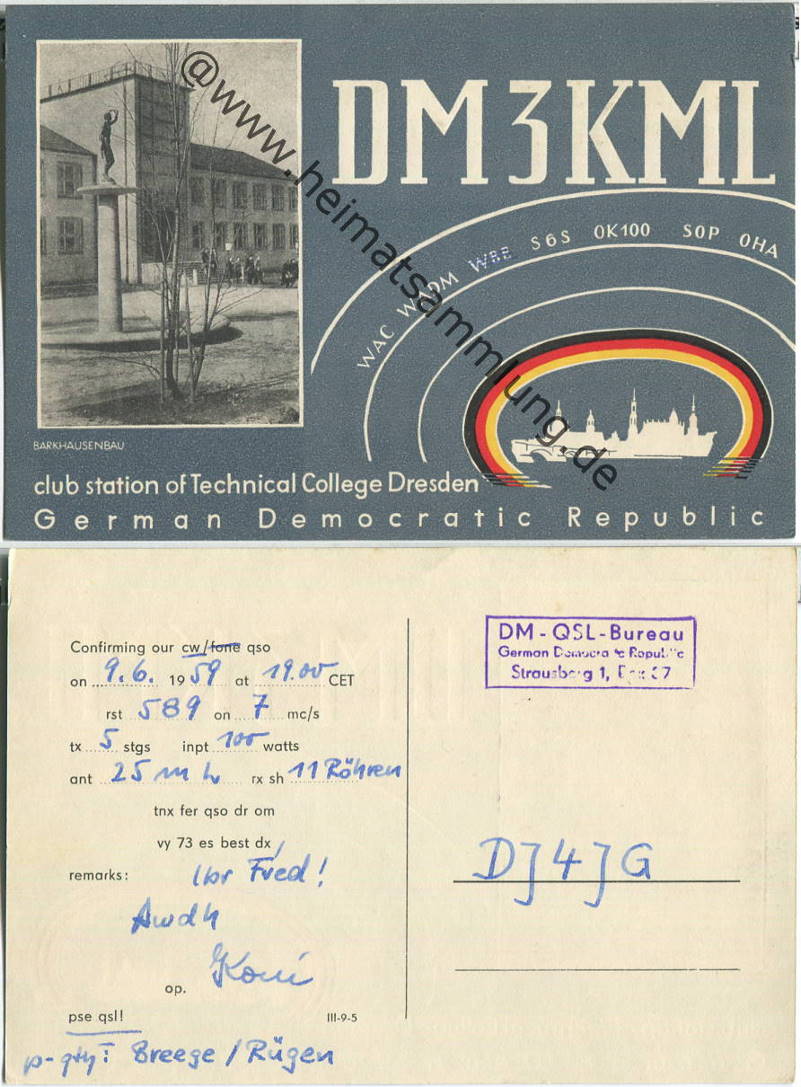 DM3KML
WAC WADM WBE S6S OK100 SOP OHA
BARKHAUSENBAU
club station of Technical College Dresden
German Democratic Republic
@www.heimatsammlung.de
Confirming our cw/fone qso
on 9.6. 1959 at 19.00 CET
rst 589 on 7 mc/s
tx 5 stgs inpt 100 watts
ant 25 m rx sh 11 Röhren
tnx fer qso dr om
vy 73 es best dx
remarks: lbr Fred!
Awdh
op. Koni
pse qsl! III-9-5
Breege / Rügen
DM-QSL-Bureau
German Democratic Republic
Strausberg 1, Box 37
DJ4JG